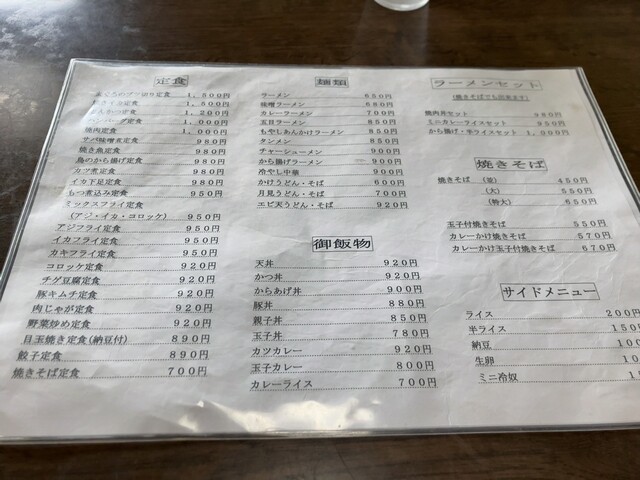 定食
まぐろのブツ切り定食 1,500円
イカ定食 1,500円
定食 1,200円
ハンバーグ定食 1,000円
焼肉定食 1,000円
サバ味噌煮定食 980円
焼き魚定食 980円
鳥のから揚げ定食 980円
カツ煮定食 980円
イカ下足定食 980円
もつ煮込み定食 950円
ミックスフライ定食
(アジ・イカ・コロッケ) 950円
アジフライ定食 950円
イカフライ定食 950円
カキフライ定食 950円
コロッケ定食 920円
チゲ豆腐定食 920円
豚キムチ定食 920円
肉じゃが定食 920円
野菜炒め定食 920円
目玉焼き定食(納豆付) 890円
餃子定食 890円
焼きそば定食 700円
麺類
ラーメン 650円
味噌ラーメン 850円
カレーラーメン 700円
五目ラーメン 850円
もやしあんかけラーメン 850円
タンメン 850円
チャーシューメン 900円
から揚げラーメン 900円
冷やし中華 900円
かけうどん・そば 600円
月見うどん・そば 700円
エビ天うどん・そば 920円
御飯物
天丼 920円
かつ丼 920円
からあげ丼 900円
豚丼 880円
親子丼 850円
玉子丼 780円
カツカレー 920円
玉子カレー 800円
カレーライス 700円
ラーメンセット
(焼きそばでも出来ます)
焼肉丼セット 980円
ミニカレーライスセット 950円
から揚げ・半ライスセット 1,000円
焼きそば
焼きそば (並) 450円
(大) 550円
(特大) 650円
玉子付焼きそば 550円
カレーかけ焼きそば 570円
カレーかけ玉子付焼きそば 670円
サイドメニュー
ライス 200円
半ライス 150
納豆 100
生卵
ミニ冷奴